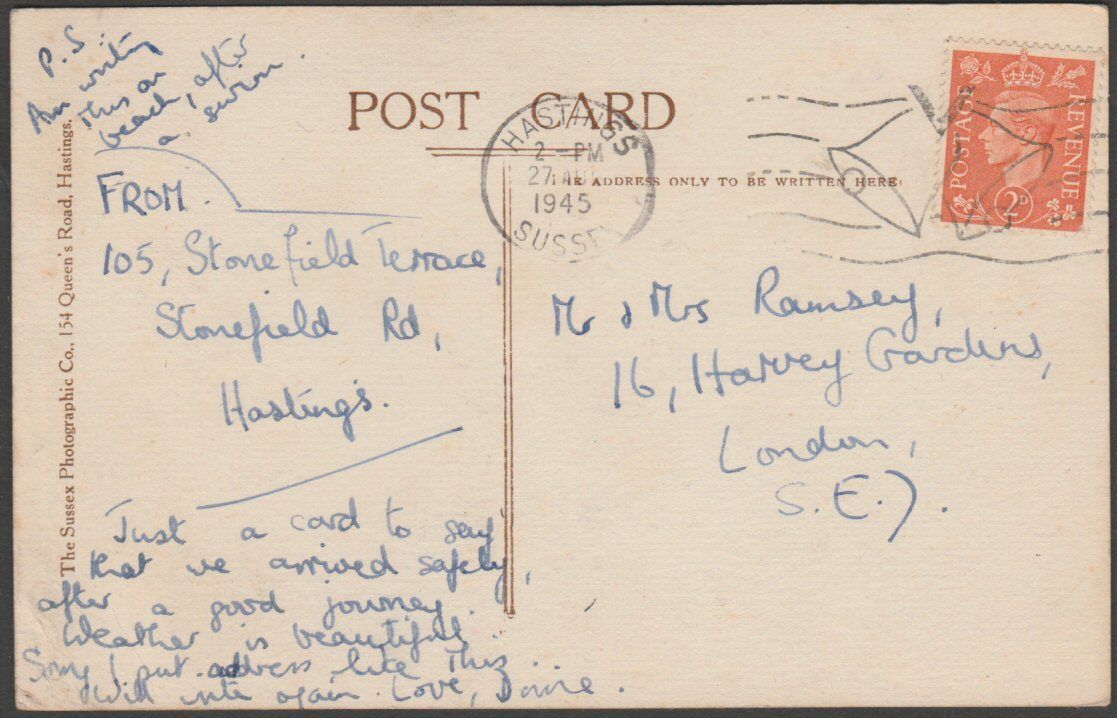 P.S.
Am writing
this on
beach, after
a swim.
POST CARD
HASTINGS
2 - PM
27 AUG
1945
SUSSEX
ADDRESS ONLY TO BE WRITTEN HERE
POSTAGE REVENUE
2D
The Sussex Photographic Co., 154 Queen's Road, Hastings.
FROM.
105, Stonefield Terrace,
Stonefield Rd,
Hastings.
Just a card to say
that we arrived safely,
after a good journey.
Weather is beautiful.
Sorry I put address like this..
Will write again. Love,
Mr & Mrs Ramsey,
16, Harvey Gardens,
London,
S.E.7.